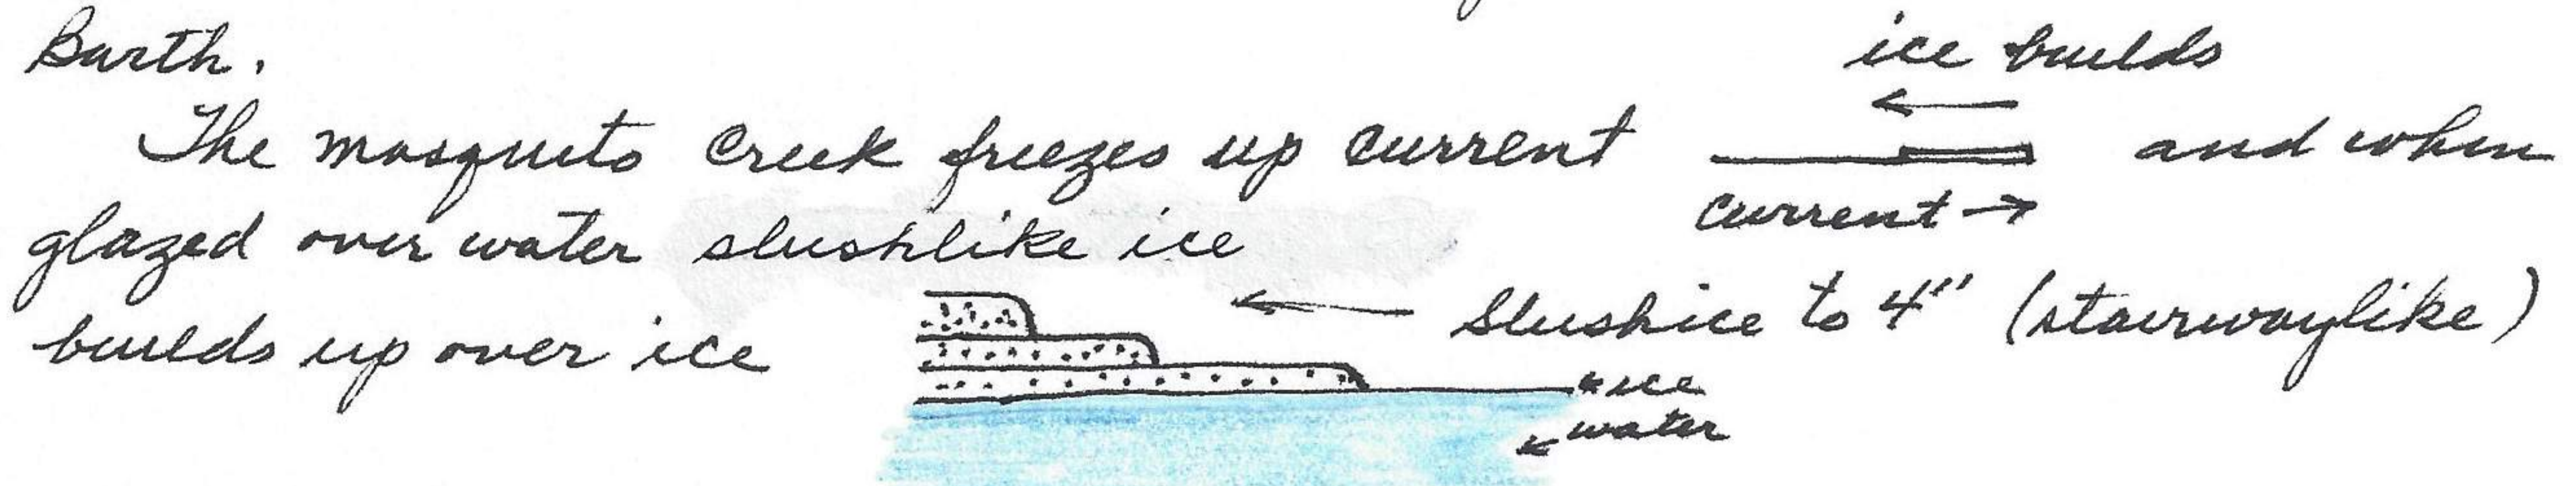 Barth.
ice builds
The mosquito creek freezes up current ← and when
current →
glazed over water slushlike ice
builds up over ice ← Slushice to 4" (stairwaylike)
ice
water